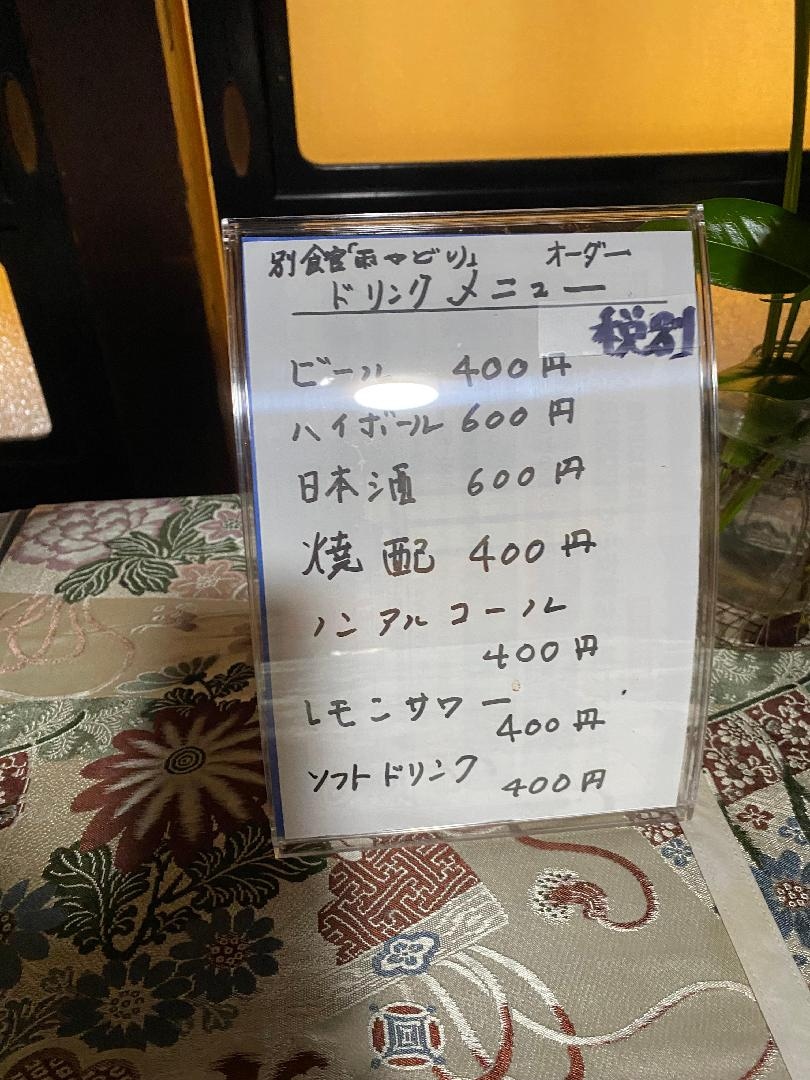 別食官「雨やどり」 オーダー
ドリンクメニュー
税別
ビール 400円
ハイボール 600円
日本酒 600円
焼配 400円
ノンアルコール
400円
レモンサワー
400円
ソフトドリンク 400円